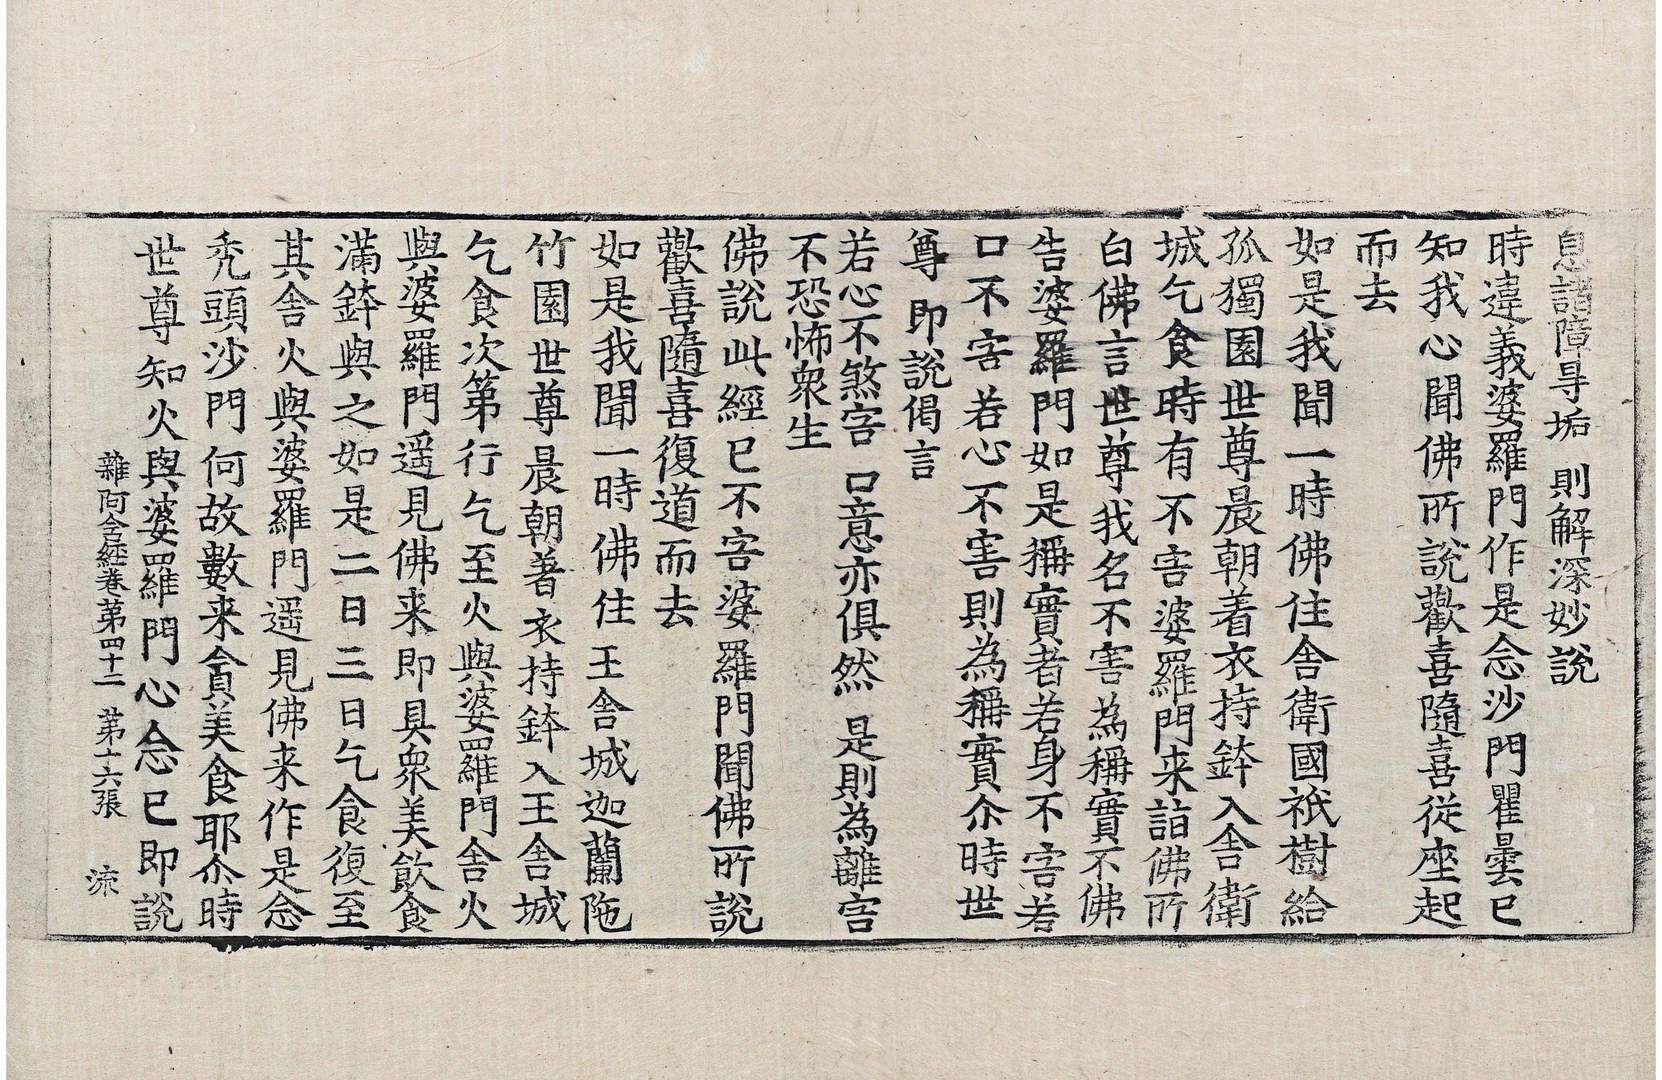 息諸障㝵垢　則解深妙說
時違義婆羅門作是念沙門瞿曇已
知我心聞佛所說歡喜隨喜從座起
而去
如是我聞一時佛住舍衛國祇樹給
孤獨園世尊晨朝着衣持鉢入舍衛
城乞食時有不害婆羅門来詣佛所
白佛言世尊我名不害為稱實不佛
告婆羅門如是稱實者若身不害若
口不害若心不害則為稱實尒時世
尊即說偈言
若心不煞害　口意亦俱然　是則為離害
不恐怖衆生
佛說此經已不害婆羅門聞佛所說
歡喜隨喜復道而去
如是我聞一時佛住王舍城迦蘭陁
竹園世尊晨朝著衣持鉢入王舍城
乞食次第行乞至火與婆羅門舍火
與婆羅門遥見佛来即具衆美飲食
滿鉢與之如是二日三日乞食復至
其舍火與婆羅門遥見佛来作是念
禿頭沙門何故數来貪美食耶尒時
世尊知火與婆羅門心念已即說
雜阿含經卷第四十二　第十六張　流